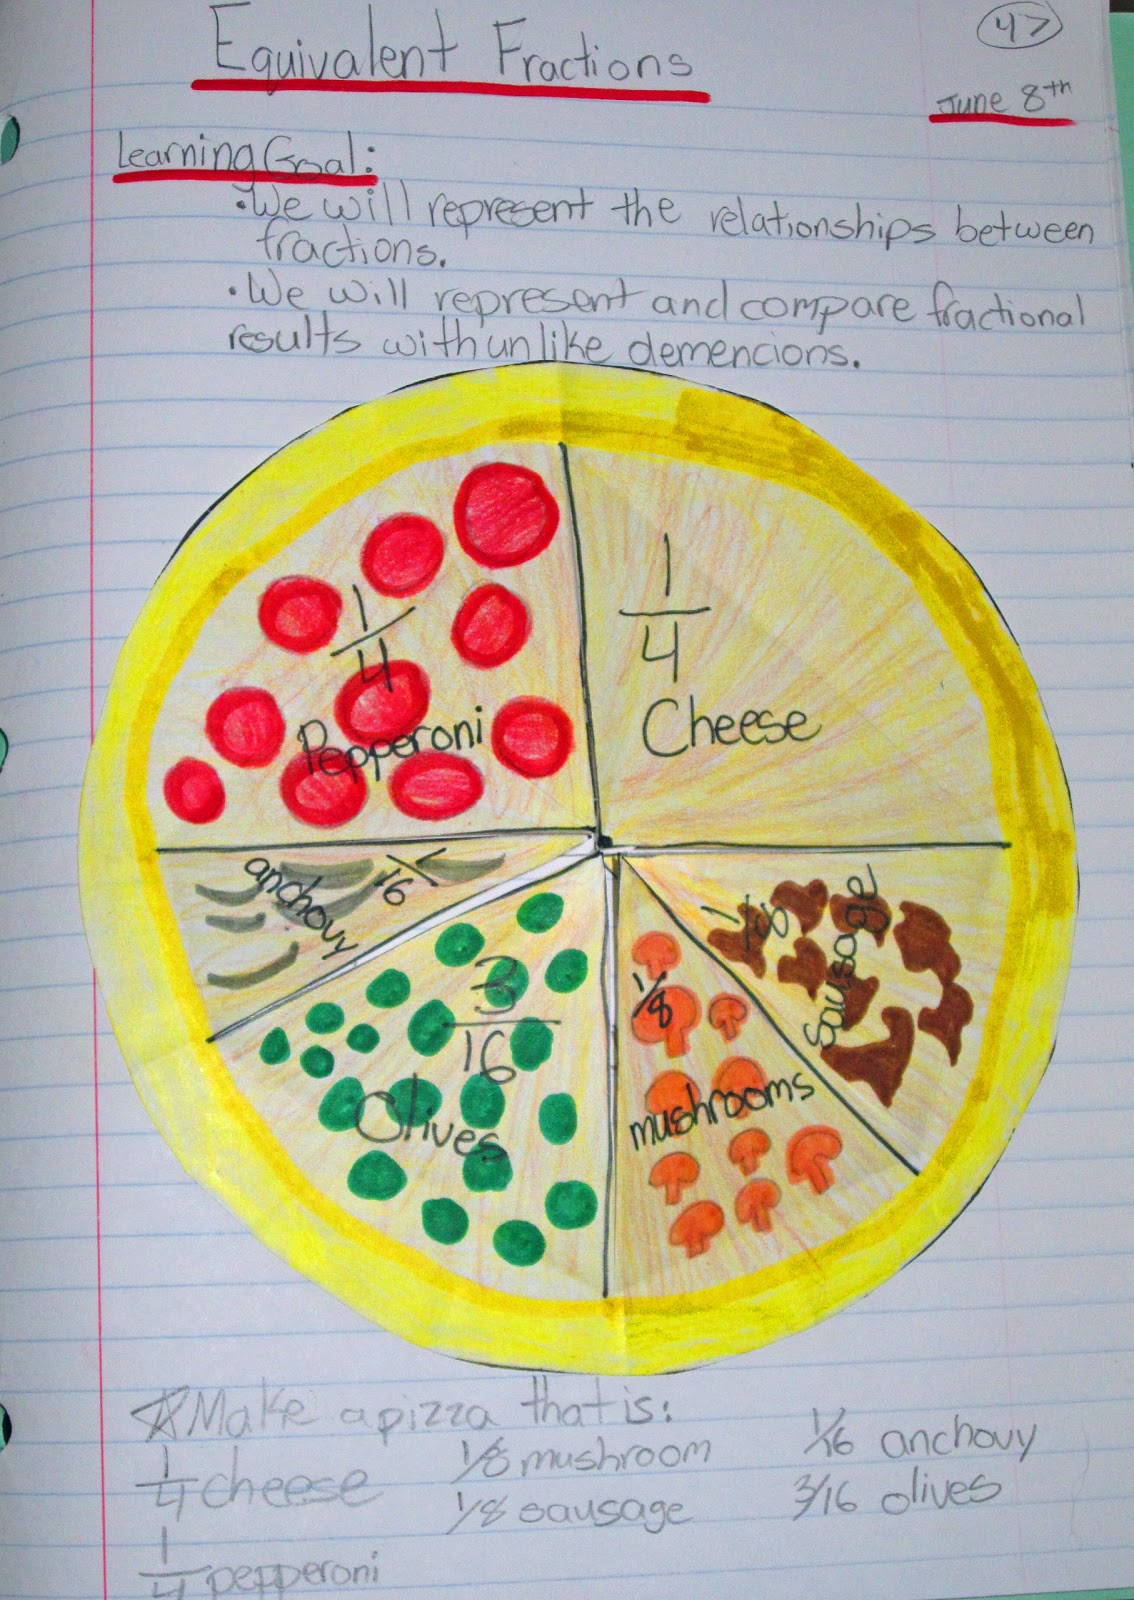 Equivalent Fractions
47
June 8th
Learning Goal:
•We will represent the relationships between
fractions.
•We will represent and compare fractional
results with unlike demencions.
1/4
Pepperoni
1/4
Cheese
anchovy
1/16
3/16
Olives
1/8
mushrooms
1/8
sausage
☆Make a pizza that is:
1/4 cheese
1/8 mushroom
1/16 anchovy
1/8 sausage
3/16 olives
1/4 pepperoni